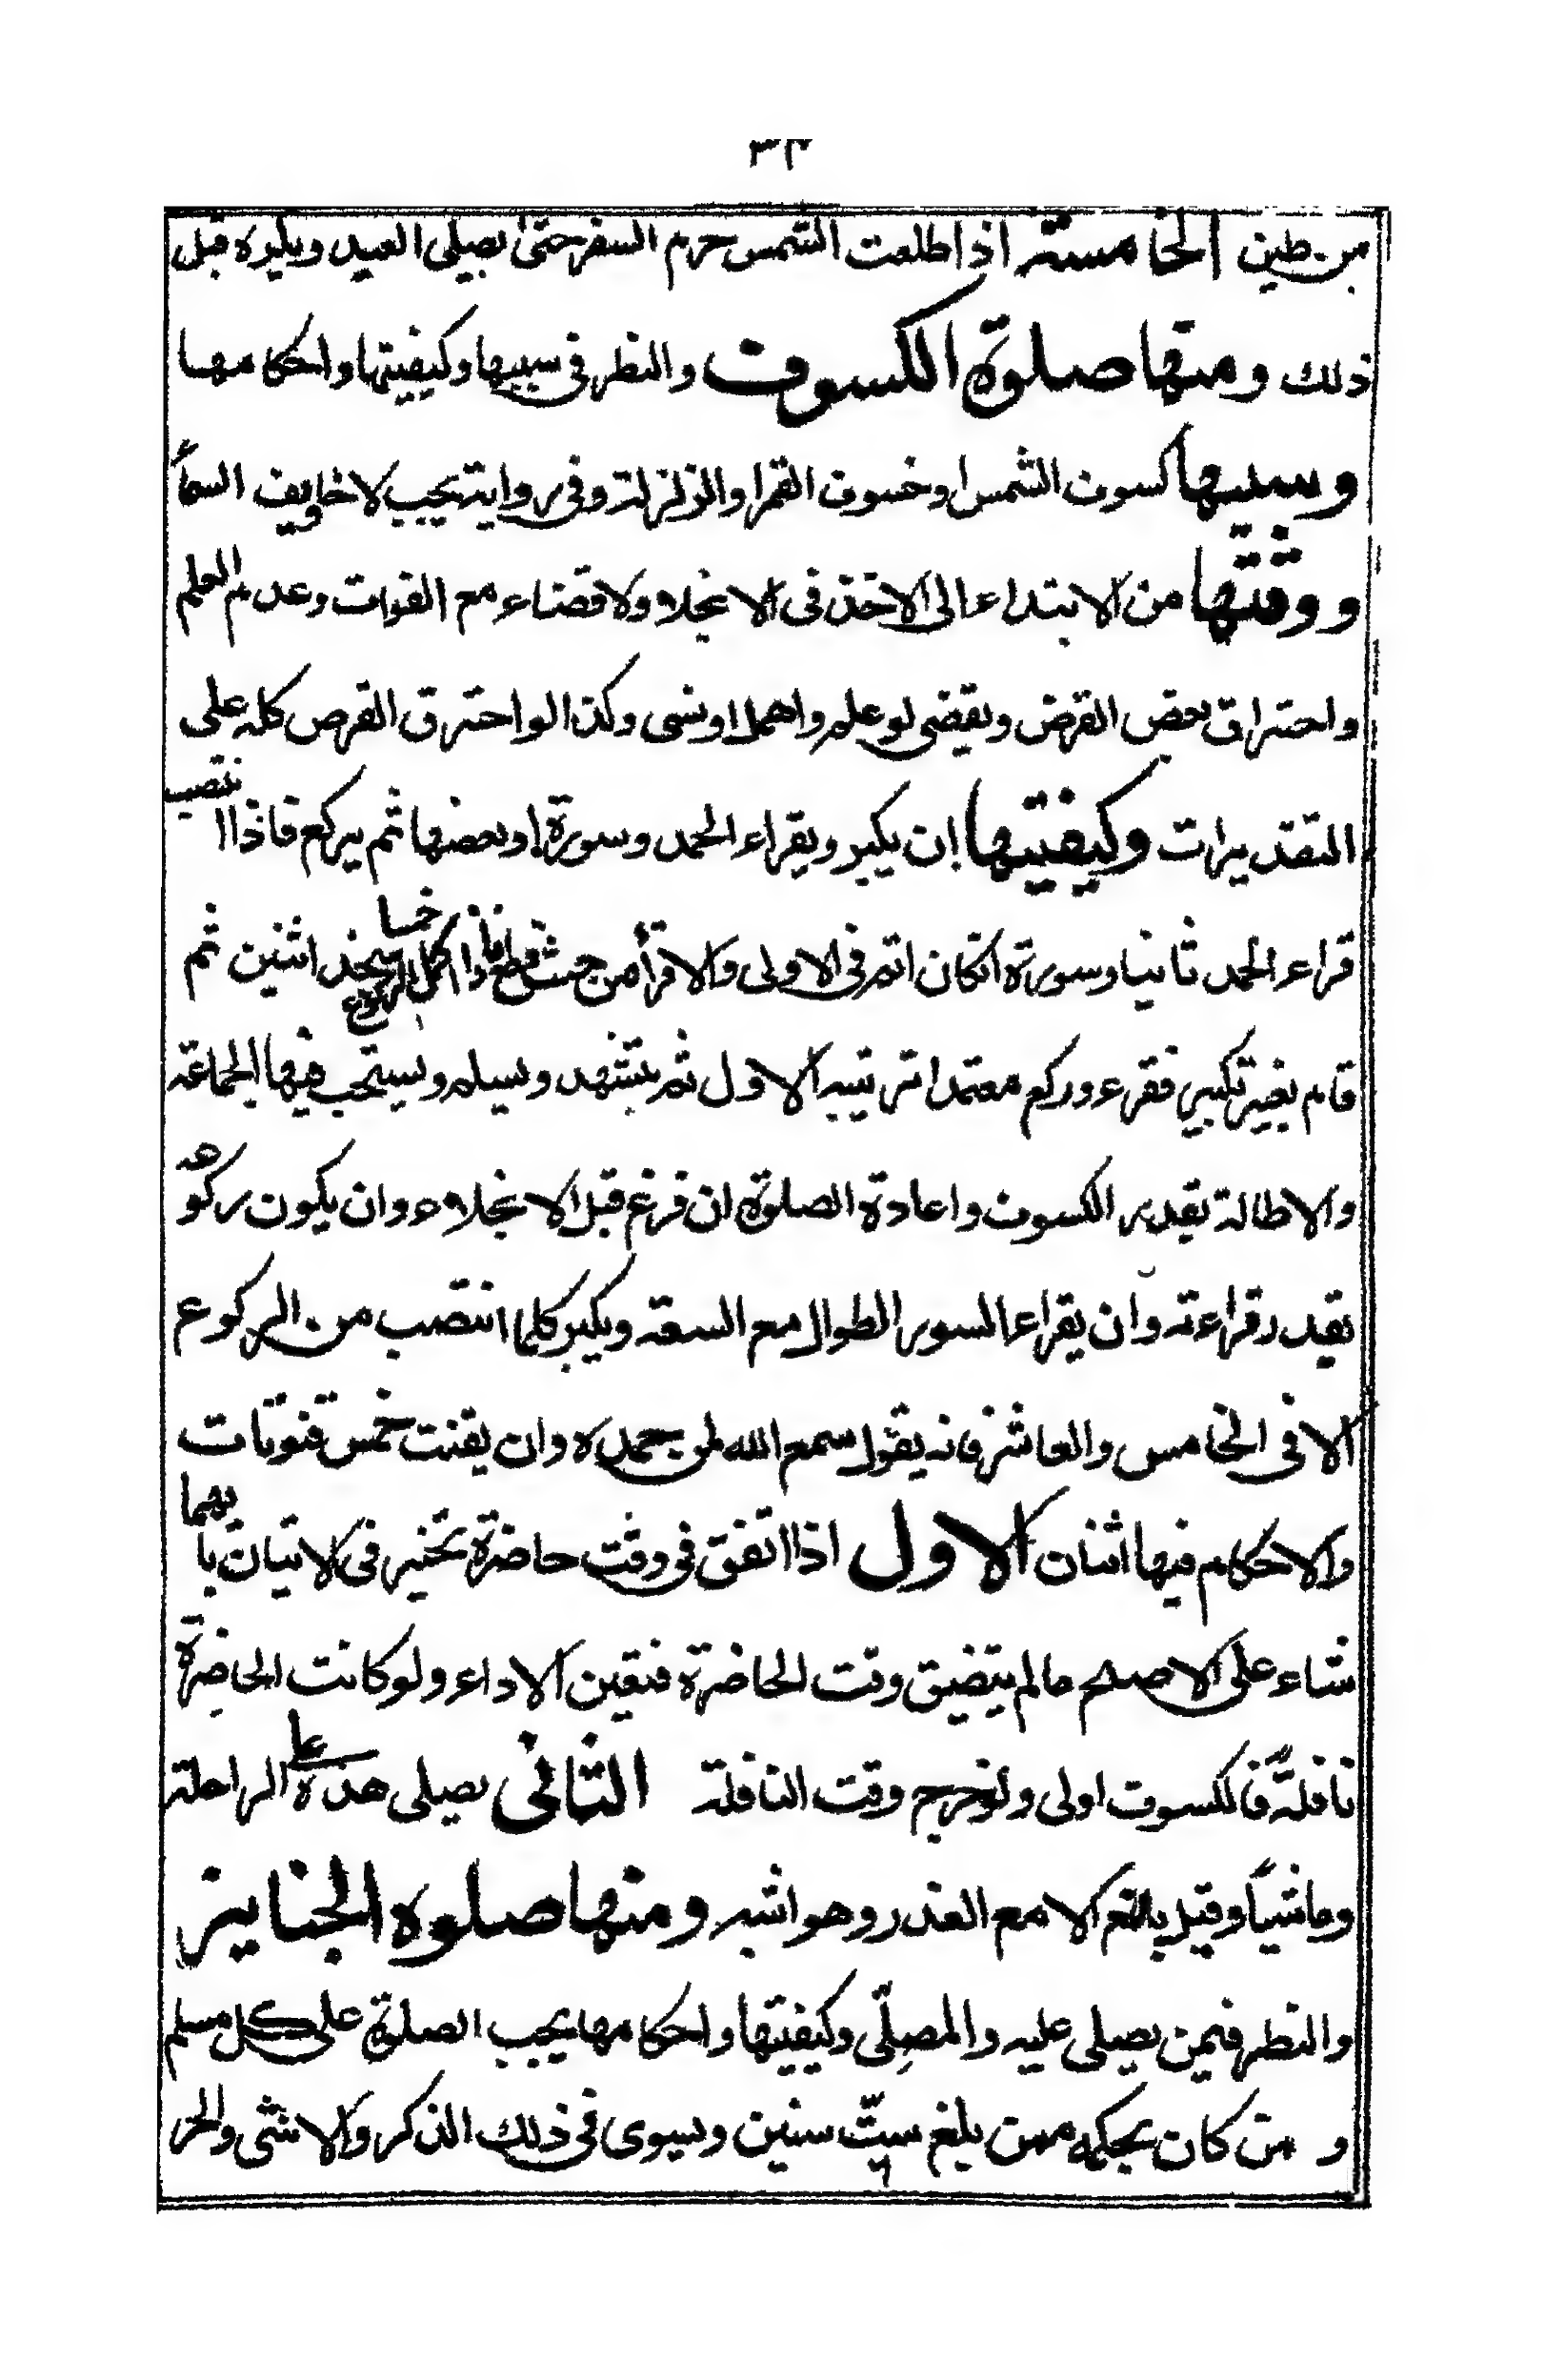 ٣٢
من طين الخامسة اذا طلعت الشمس حرم السفر حتى يصلى العيد ويكره قبل
ذلك ومنها صلوة الكسوف والنظر فى سببها وكيفيتها واحكامها
وسببها كسوف الشمس او خسوف القمر او الزلزلة وفى رواية يجب لاخاويف السماء
ووقتها من الابتداء الى الاخذ فى الانجلاء ولا قضاء مع الفوات وعدم العلم
واحتراق بعض القرض ويقضى لو علم واهمل او نسى وكذا لو احترق القرص كله على
التقديرات وكيفيتها ان يكبر ويقراء الحمد وسورة او بعضها ثم يركع فاذا انتصب
قراء الحمد ثانيا وسورة انكان اتم فى الاولى والا قرأ من حيث قطع فاذا اكمل الركوع خمسا سجد اثنين ثم
قام بغير تكبير فقرء وركع معتمدا ترتيبه الاول ثم يتشهد ويسلم ويستحب فيها الجماعة
والاطالة بقدر الكسوف واعادة الصلوة ان فرغ قبل الانجلاء وان يكون ركوعه
بقدر قراءته وان يقراء السور الطوال مع السعة ويكبر كلما انتصب من الركوع
الا فى الخامس والعاشر فانه يقول سمع الله لمن حمده وان يقنت خمس قنوتات
والاحكام فيها اثنان الاول اذا اتفق فى وقت حاضرة تخير فى الاتيان بايهما
شاء على الاصح مالم يتضيق وقت الحاضرة فتعين الاداء ولو كانت الحاضرة
نافلة فالكسوف اولى ولو خرج وقت النافلة الثانى يصلى هذه على الراحلة
وماشيا وقيل بالمنع الا مع العذر وهو اشبه ومنها صلوة الجنايز
والنظر فيمن يصلى عليه والمصلّى وكيفيتها واحكامها يجب الصلوة على كل مسلم
و من كان بحكمه ممن بلغ ستّ سنين ويسوى فى ذلك الذكر والانثى والحر
٦